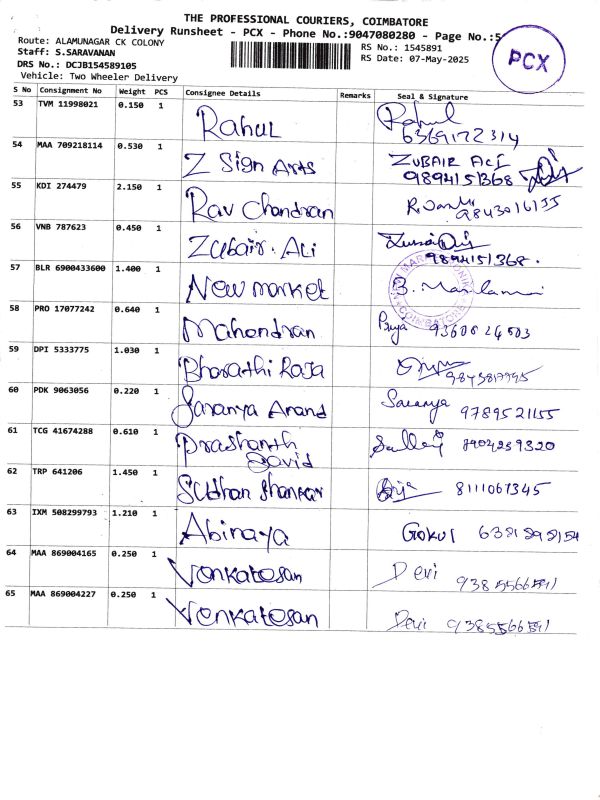 THE PROFESSIONAL COURIERS, COIMBATORE
Delivery Runsheet - PCX - Phone No.:9047080280 - Page No.:5
Route: ALAMUNAGAR CK COLONY
Staff: S.SARAVANAN
RS No.: 1545891
DRS No.: DCJB154589105
RS Date: 07-May-2025
Vehicle: Two Wheeler Delivery
PCX
S No Consignment No Weight PCS Consignee Details Remarks Seal & Signature
53 TVM 11998021 0.150 1 Rahul Rahul
6369172314
54 MAA 709218114 0.530 1 Z Sign Arts ZUBAIR ALI
9894151368
55 KDI 274479 2.150 1 Rav Chandran
9843016135
56 VNB 787623 0.450 1 Zubair. Ali
9894151368.
57 BLR 6900433600 1.400 1 New market
58 PRO 17077242 0.640 1 Mahendran Priya
59 DPI 5333775 1.030 1 Bharathi Raja
60 PDK 9063056 0.220 1 Saranya Anand Saranya 9789521155
61 TCG 41674288 0.610 1 Prashanth
David 8904259320
62 TRP 641206 1.450 1 Sudhan Shankar 8111067345
63 IXM 508299793 1.210 1 Abinaya GOKUL
64 MAA 869004165 0.250 1 Venkatesan Devi
9385566591
65 MAA 869004227 0.250 1 Venkatesan Devi 9385566591